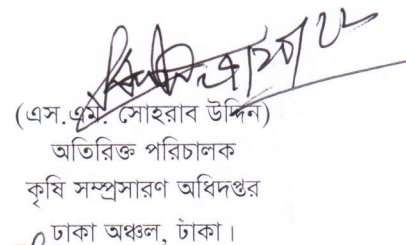 (এস.এম. সোহরাব উদ্দিন)
অতিরিক্ত পরিচালক
কৃষি সম্প্রসারণ অধিদপ্তর
ঢাকা অঞ্চল, ঢাকা।